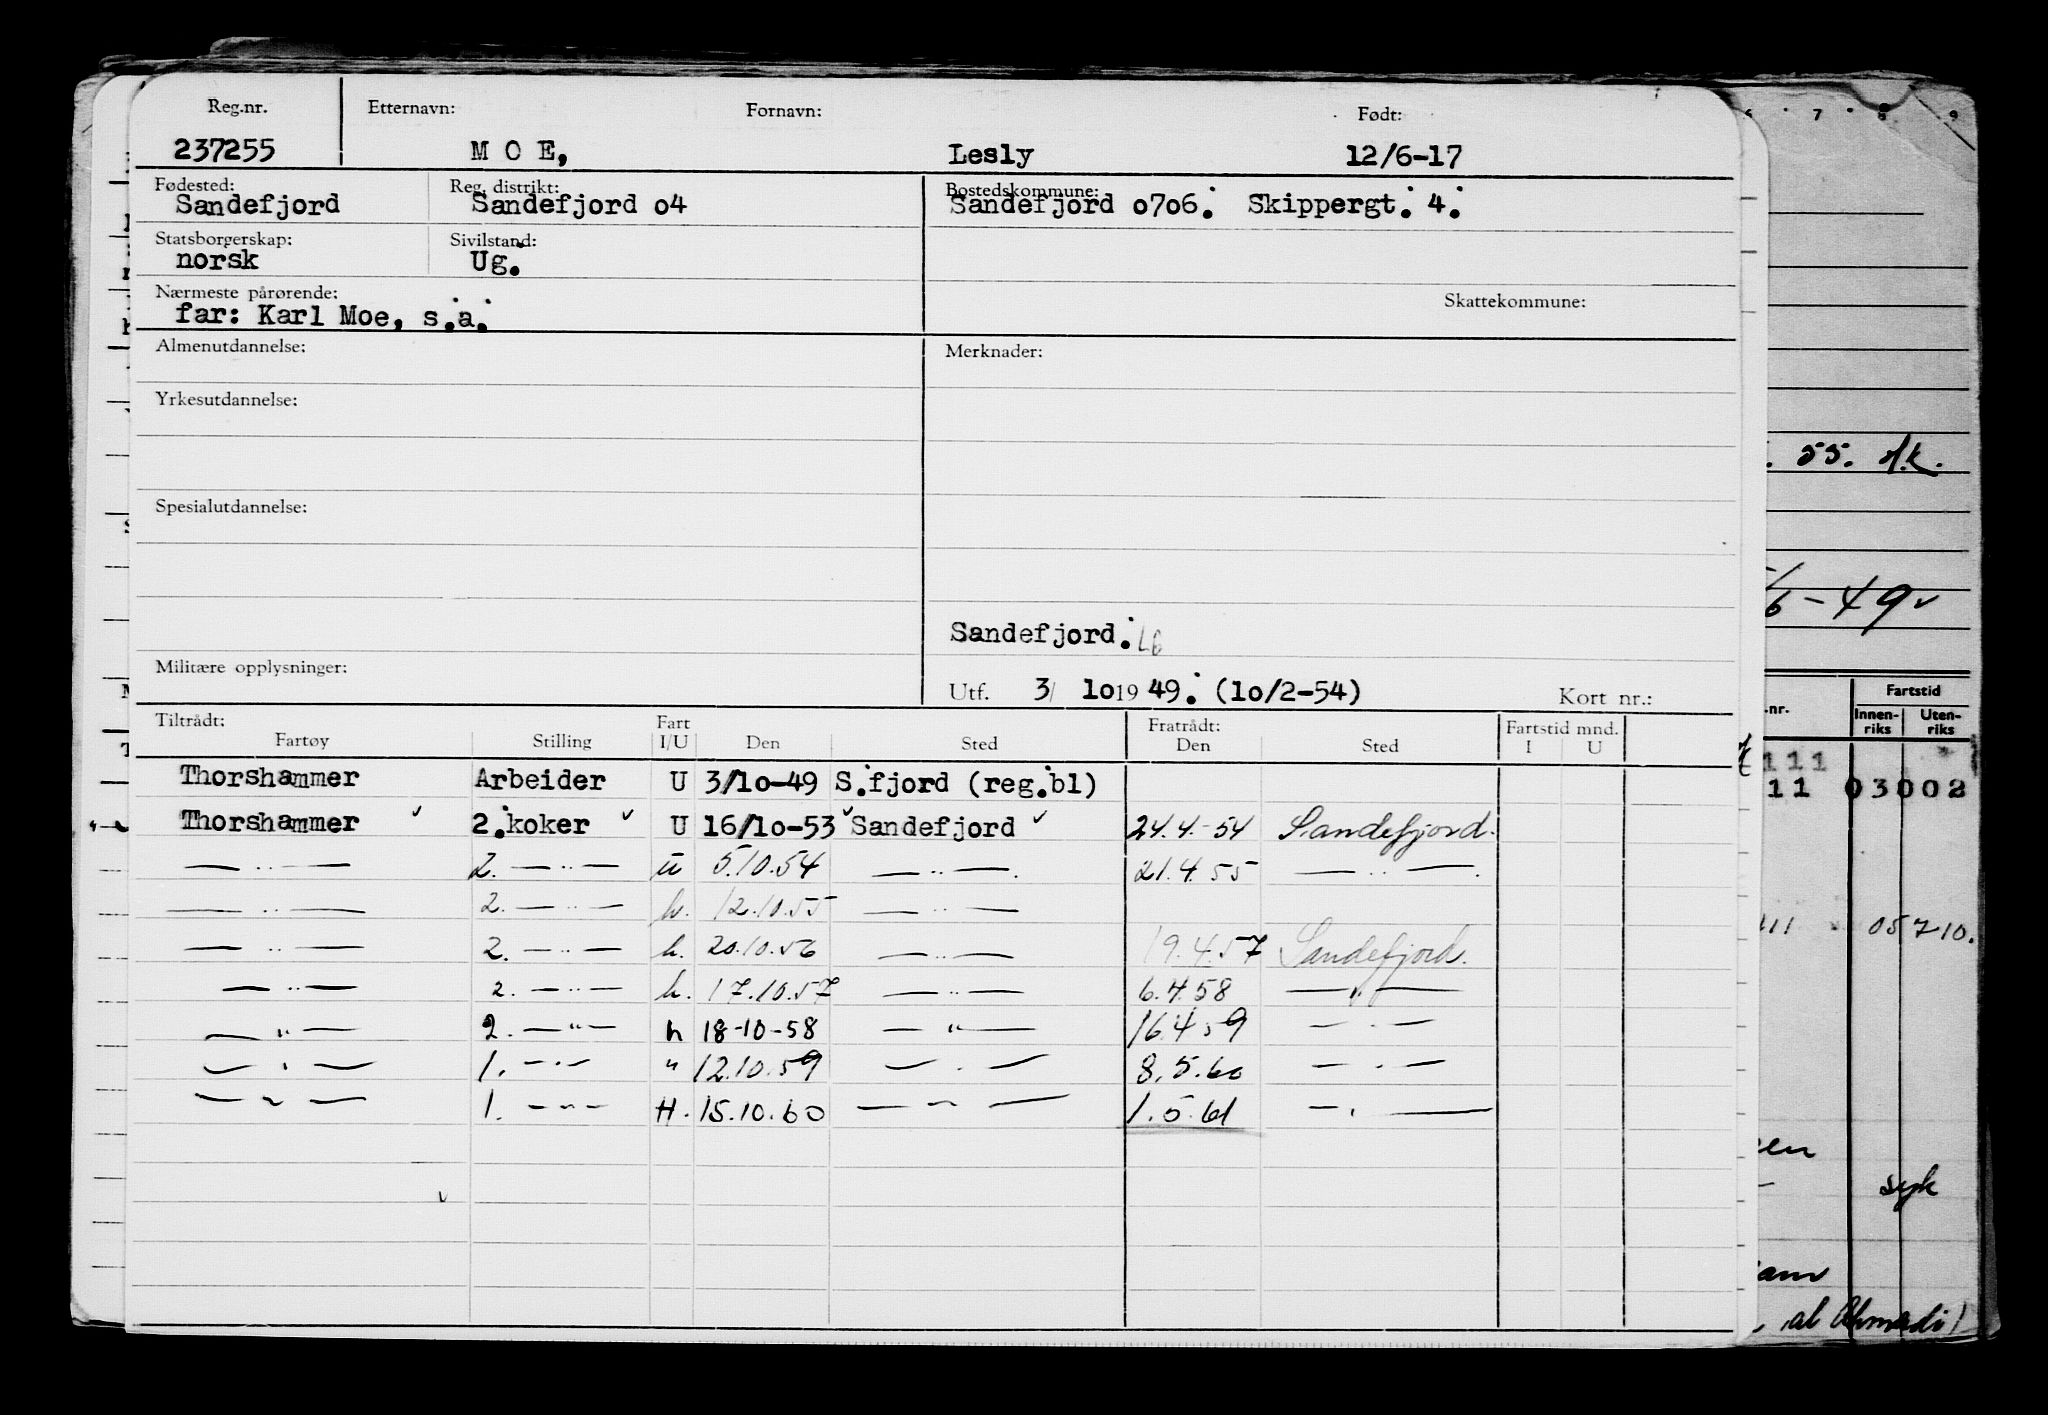 Reg.nr. Etternavn: Fornavn: Født:
237255 M O E, Lesly 12/6-17
Fødested: Reg. distrikt: Bostedskommune:
Sandefjord Sandefjord o4 Sandefjord o7o6. Skippergt. 4.
Statsborgerskap: Sivilstand:
norsk Ug.
Nærmeste pårørende: Skattekommune:
far: Karl Moe, s.a.
Almenutdannelse: Merknader:
Yrkesutdannelse:
Spesialutdannelse:
Sandefjord.
Militære opplysninger:
Utf. 3/ 1o 19 49. (1o/2-54) Kort nr.:
Tiltrådt: Fart Fratrådt: Fartstid mnd.
Fartøy Stilling I/U Den Sted Den Sted I U
Thorshammer Arbeider U 3/1o-49 S.fjord (reg.bl)
Thorshammer 2.koker U 16/1o-53 Sandefjord 24.4.-54 Sandefjord.
— " — 2. — " — u 5.10.54 — " —. 21.4.55 — " —.
— " — 2. — " — h. 12.10.55 — " —
— " — 2. — " — h. 20.10.56 — " — 19.4.57 Sandefjord.
— " — 2. — " — h. 17.10.57 — " — 6.4.58 — " —
— " — 2. — " — h 18-10-58 — " — 16.4.59 — " —
— " — 1. — " — " 12.10.59 — " — 8.5.60 — " —
— " — 1. — " — H. 15.10.60 — " — 1.5.61 — " —
6 7 8 9
. 55. d.k.
6-49
.nr. Fartstid
Innen-riks Uten-riks
111
11 03002
111 05710.
en
syk
am
al Ahmadi)